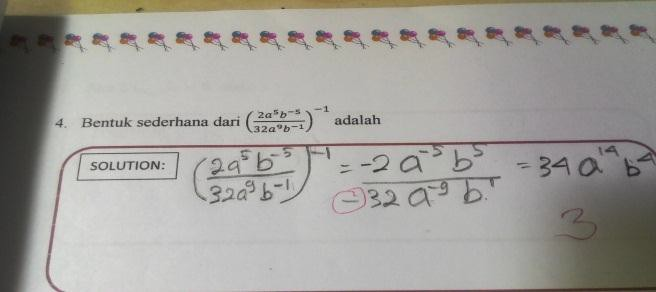 4. Bentuk sederhana dari (2a⁵b⁻⁵/32a⁹b⁻¹)⁻¹ adalah
SOLUTION: (2a⁵b⁻⁵/32a⁹b⁻¹)⁻¹ = -2a⁻⁵b⁵/-32a⁻⁹b¹ = 34a¹⁴b⁴
3